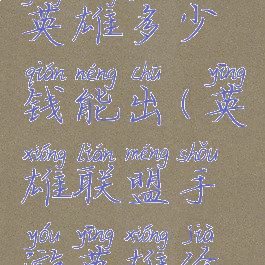 英雄多少
qián néng chū yīng
钱能出(英
xióng lián méng shǒu
雄联盟手
yóu yīng xióng jià
游英雄价